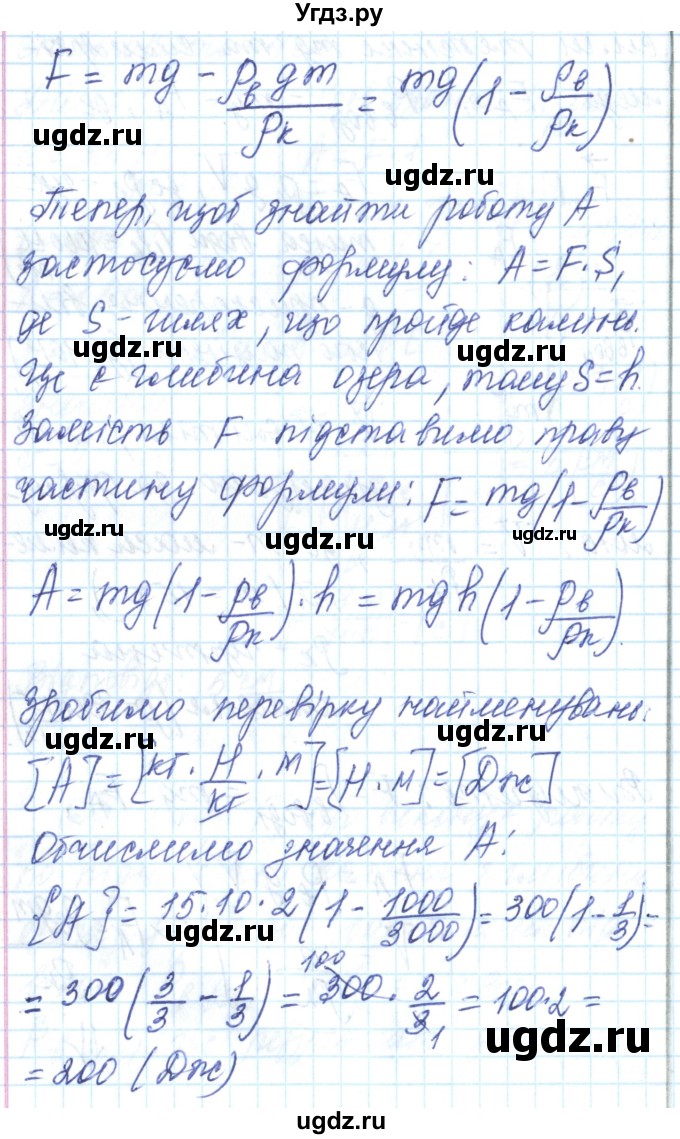 Угдз.ру
F = mg - ρв gm / ρк = mg(1 - ρв/ρк).
ugdz.ru ugdz.ru
Тепер, щоб знайти роботу A
застосуємо формулу: A = F·S,
ugdz.ru ugdz.ru
де S - шлях, що пройде камінь.
ugdz.ru ugdz.ru
Це є глибина озера, тому S = h.
Замість F підставимо праву
частину формули: F = mg(1 - ρв/ρк)
ugdz.ru ugdz.ru ugdz.ru
A = mg(1 - ρв/ρк)·h = mgh(1 - ρв/ρк).
Зробимо перевірку найменувань:
ugdz.ru ugdz.ru
[A] = [кг · Н/кг · м] = [Н·м] = [Дж]
Обчислимо значення A:
{A} = 15·10·2(1 - 1000/3000) = 300(1 - 1/3) =
ugdz.ru
= 300(3/3 - 1/3) = 100 300 · 2/3 1 = 100·2 =
ugdz.ru ugdz.ru
= 200 (Дж)
ugdz.ru